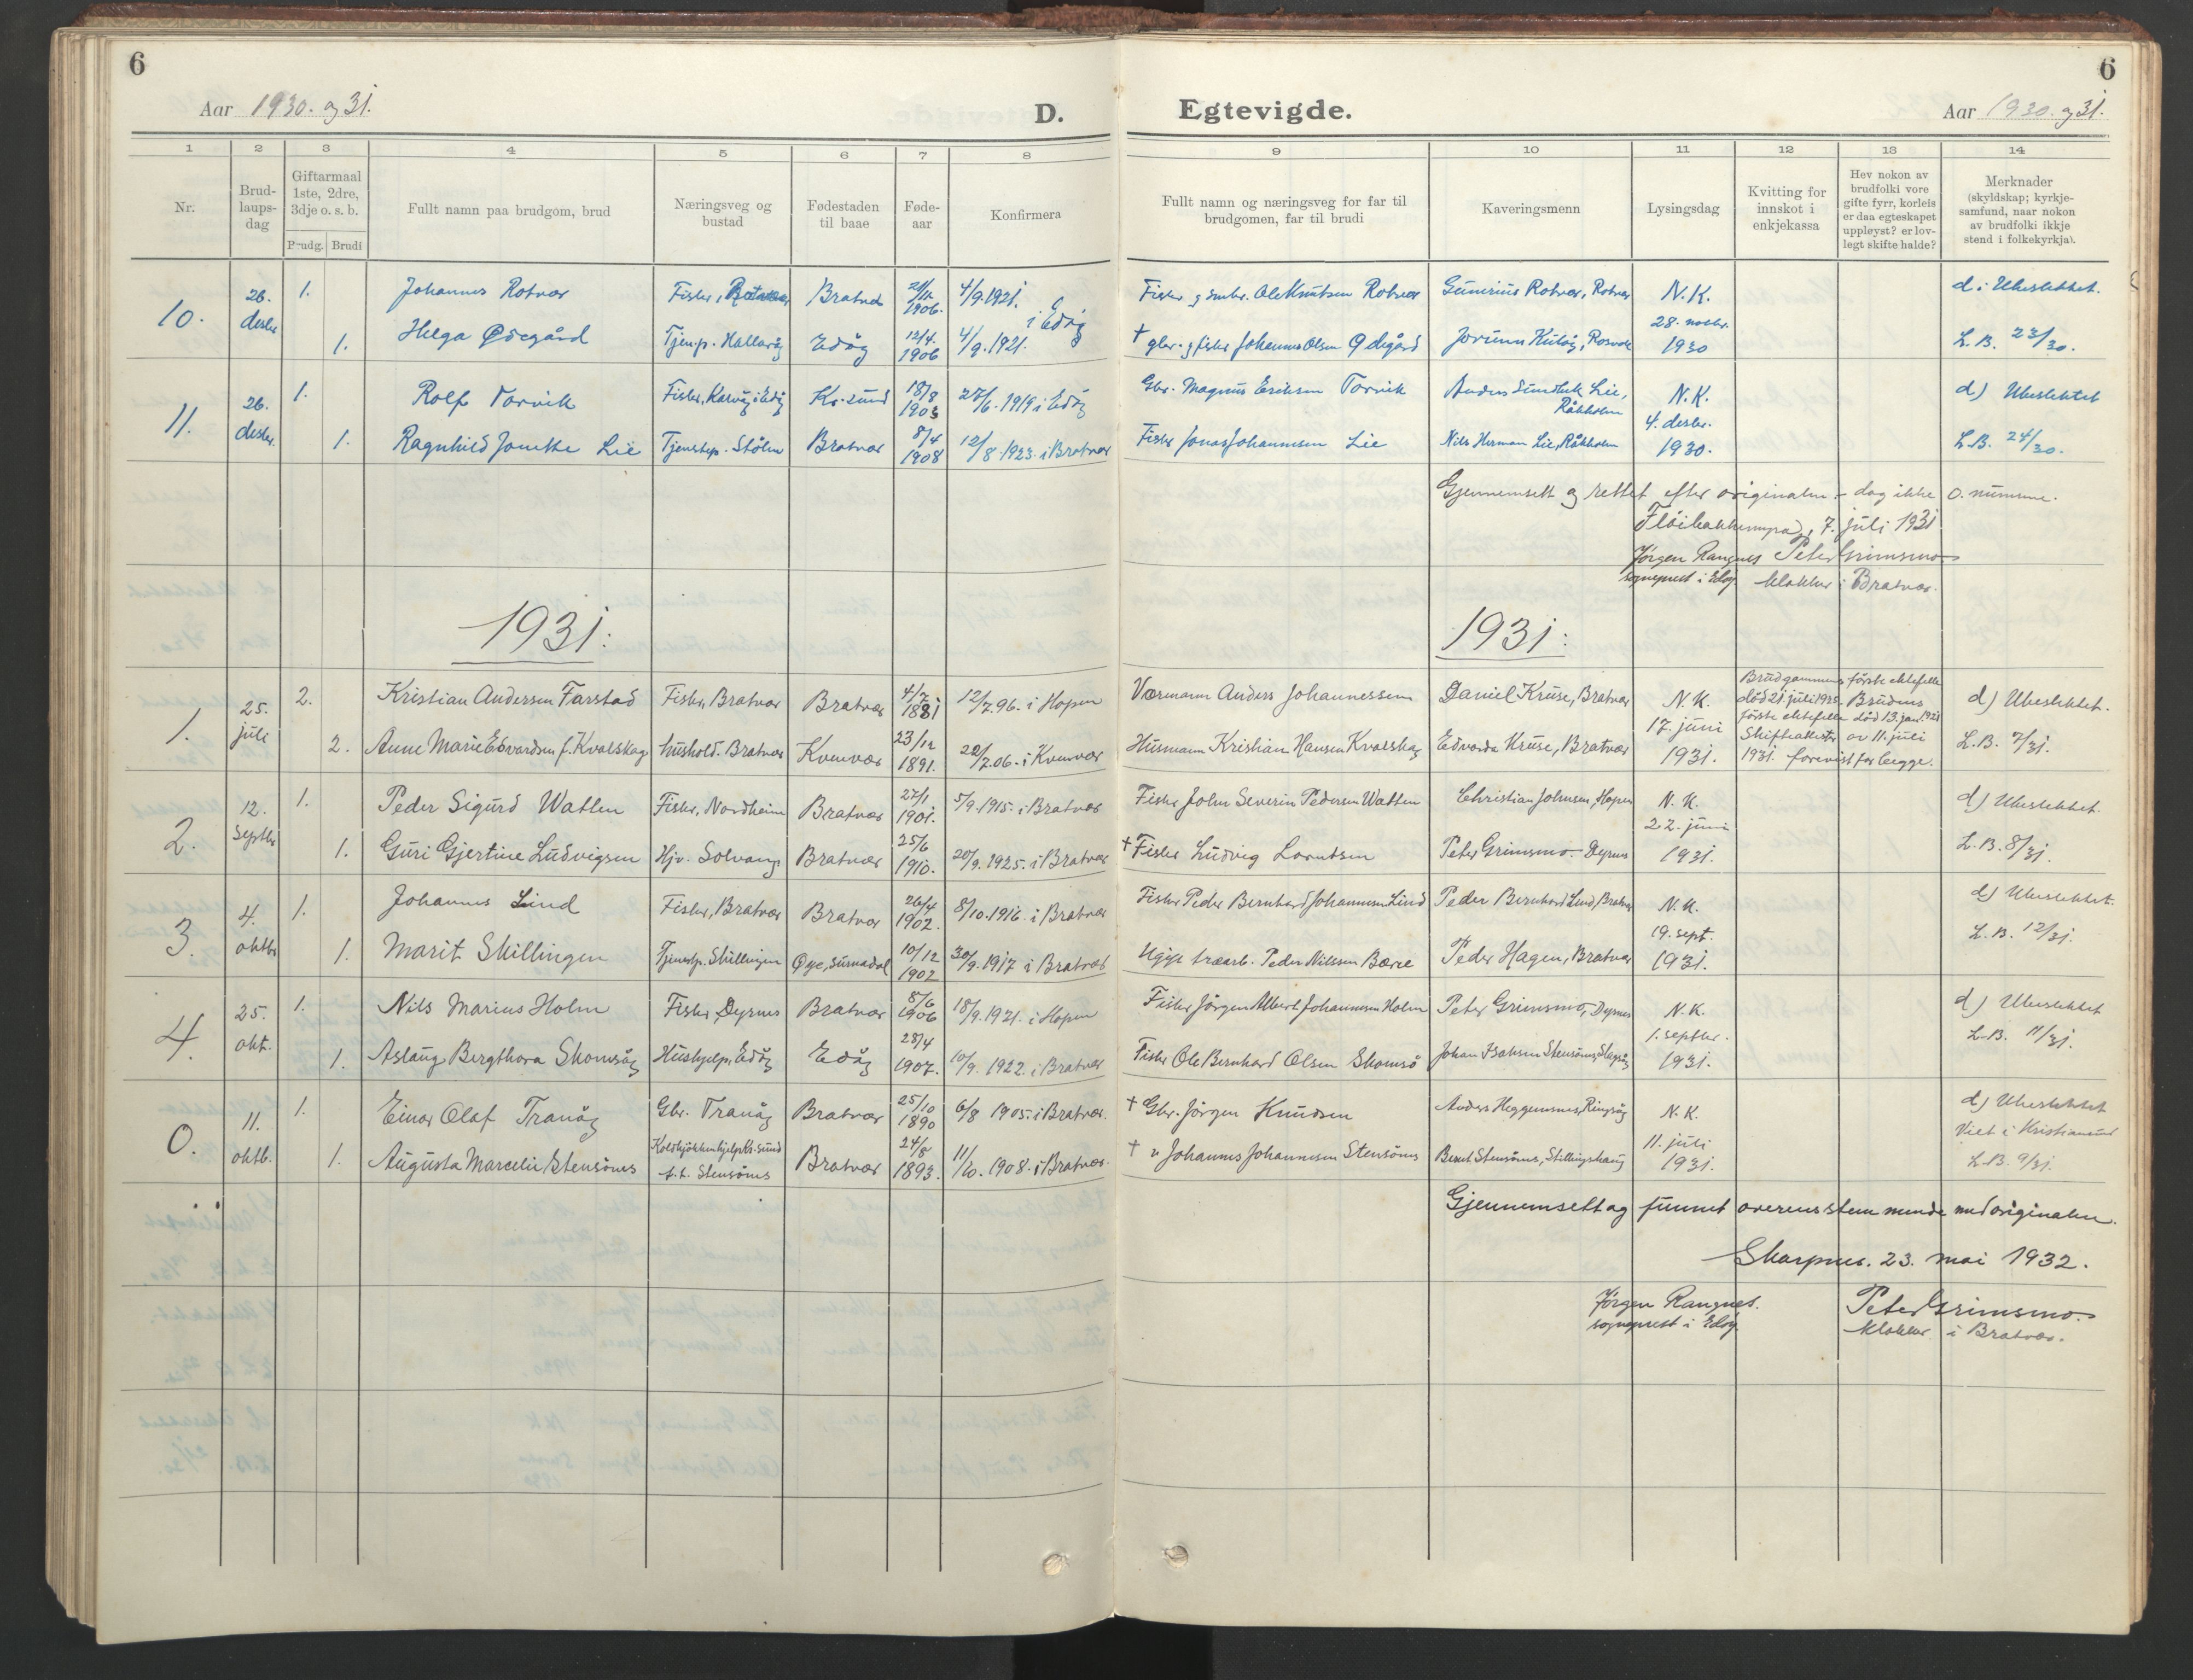 6
Aar 1930. og 31.
D.
Egtevigde.
Aar 1930. og 31.
6
1 2 3 4 5 6 7 8 9 10 11 12 13 14
Nr.
Brud-
laups-
dag
Giftarmaal
1ste, 2dre,
3dje o. s. b.
Brudg. Brudi
Fullt namn paa brudgom, brud
Næringsveg og
bustad
Fødestaden
til baae
Føde-
aar
Konfirmera
Fullt namn og næringsveg for far til
brudgomen, far til brudi
Kaveringsmenn
Lysingsdag
Kvitting for
innskot i
enkjekassa
Hev nokon av
brudfolki vore
gifte fyrr, korleis
er daa egteskapet
uppløyst? er lov-
legt skifte halde?
Merknader
(skyldskap; kyrkje-
samfund, naar nokon
av brudfolki ikkje
stend i folkekyrkja).
10. 26. desbr.
1. Johannes Rotvær Fisker, 1906. 4/9.1921. i Edøy Fisker og Ole Knutsen Rotvær Gunerius Rotvær, Rotvær N.K. 28. novbr. 1930 d. Ubeslektet.
1. Helga Ødegård Tjenp. Hallarøy Edøy 12/4. 1906 4/9.1921. † gbr. og fisker Johannes Olsen Ødegård Jorunn L.B. 23/30.
11. 26. desbr.
1. Rolf Torvik Fisker, Karvøy i Edøy Kr.sund 18/8 1903 27/6.1919 i Edøy Gbr. Magnus Eriksen Torvik Anders Lie, Råkholm N.K. 4. desbr. 1930. d) Ubeslektet
1. Ragnhild Jonette Lie Tjenstep. Stölen Bratvær 8/4 1908 12/8 1923. i Bratvær Fisker Jonas Johannesen Lie Nils Herman Lie, Råkholm L.B. 24/30.
Gjennemsett og rettet efter originalen - dog ikke 0. numrene.
7. juli 1931
Jørgen Rangnes Peter Grimsmo
sogneprest i Edøy klokker i Bratvær.
1931:
1931:
1. 25. juli
2. Kristian Andersen Farstad Fisker, Bratvær Bratvær 4/7 1881 12/7.96. i Hopen Værmann Anders Johannessen Daniel Kruse, Bratvær N.K. 17. juni 1931. d) Ubeslektet.
2. Anne Marie Edvardsen f. Kvalskag hushold. Bratvær Kvenvær 23/12 1891. 22/7.06. i Kvenvær Husmann Kristian Hansen Kvalskag Edvarda Kruse, Bratvær L.B. 7/31.
Brudgommens første ektefelle
død 21 juli 1925. Brudens
første ektefelle død 13. jan. 1921
Skifteattester av 11. juli
1931. forevist for begge.
2. 12. septbr
1. Peder Sigurd Watten Fisker, Nordheim Bratvær 27/1 1901. 5/9.1915. i Bratvær Fisker John Severin Pedersen Watten Christian Johnsen, Hopen N.K. 22. juni 1931. d) Ubeslektet.
1. Guri Gjertine Ludvigsen Hjv. Solvang Bratvær 25/6 1910. 20/9.1925. i Bratvær † Fisker Ludvig Lorntsen Peter Grimsmo - Dyrnes L.B. 8/31.
3. 4. oktbr
1. Johannes Lind Fisker, Bratvær Bratvær 26/4 1902. 8/10.1916. i Bratvær Fisker Peder Bernhard Johannesen Lind Peder Bernhard Lind, Bratvær N.K. 19. sept. 1931. d) Ubeslektet.
1. Marit Skillingen Tjenstp. Skillingen Øye, Surnadal 10/12 1902 30/9.1917 i Bratvær Ugift træarb. Peder Nilssen Bærre Peder Hagen, Bratvær L.B. 12/31.
4. 25. okt.
1. Nils Marius Holm Fisker, Dyrnes Bratvær 8/6 1906 18/9.1921. i Hopen Fisker Jörgen Albert Johannesen Holm Peter Grimsmo, Dyrnes N.K. 1. septbr. 1931. d) Ubeslektet
1. Aslaug Bergthora Skomsøy Hushjelp, Edøy Edøy 28/4 1907. 10/9. 1922. i Bratvær Fisker Ole Bernhard Olsen Skomsö Johan L.B. 11/31.
0. 11. oktb.
1. Einar Olaf Tranøy Gbr. Tranøy Bratvær 25/10 1890 6/8 1905. i Bratvær. † Gbr. Jörgen Knudsen Anders Heggemsnes, Ringsøy N.K. 11. juli 1931. d) Ubeslektet
Viet i Kristiansund
1. Augusta Marcelie Stensönes Koldkjökkenhjelp Kr.sund f.t. Stensönes Bratvær 24/8 1893. 11/10. 1908. i Bratvær. † Johannes Johannesen Stensönes Bernt Stensönes, L.B. 9/31.
Gjennemsett og funnet overensstemmende med originalen.
Skarpnes. 23. mai 1932.
Jørgen Rangnes. Peter Grimsmo.
sogneprest i Edøy. klokker i Bratvær.